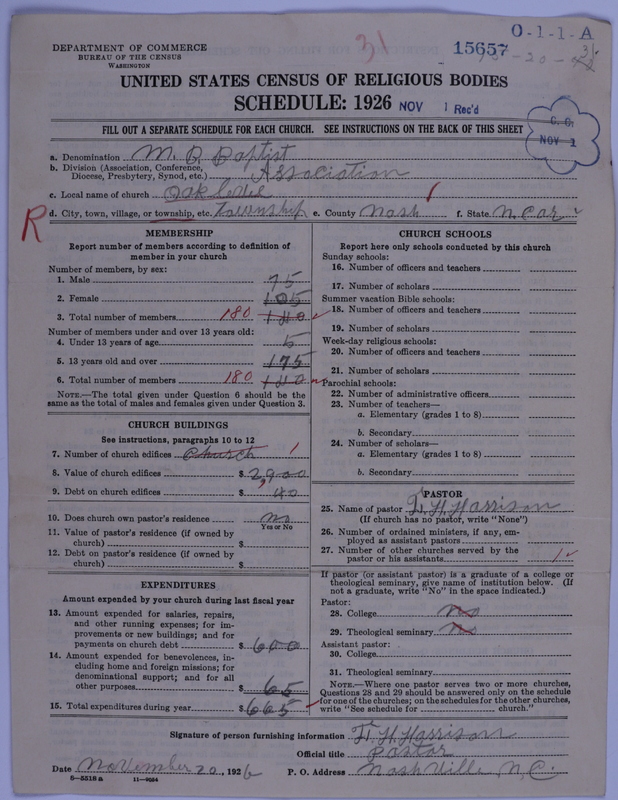 O-1-1-A
31
15657
DEPARTMENT OF COMMERCE
BUREAU OF THE CENSUS
WASHINGTON
UNITED STATES CENSUS OF RELIGIOUS BODIES
SCHEDULE: 1926 NOV 1 Rec'd
FILL OUT A SEPARATE SCHEDULE FOR EACH CHURCH. SEE INSTRUCTIONS ON THE BACK OF THIS SHEET
NOV 1
a. Denomination M. B. Baptist
b. Division (Association, Conference, Diocese, Presbytery, Synod, etc.) Association
c. Local name of church Oak
R d. City, town, village, or township, etc. Township e. County Nash f. State N. Car
MEMBERSHIP
Report number of members according to definition of
member in your church
Number of members, by sex:
1. Male 75
2. Female 105
3. Total number of members 180
Number of members under and over 13 years old:
4. Under 13 years of age 5
5. 13 years old and over 175
6. Total number of members 180
NOTE.—The total given under Question 6 should be the
same as the total of males and females given under Question 3.
CHURCH BUILDINGS
See instructions, paragraphs 10 to 12
7. Number of church edifices Church 1
8. Value of church edifices $ 2,900
9. Debt on church edifices $ 40
10. Does church own pastor's residence no
Yes or No
11. Value of pastor's residence (if owned by
church) $
12. Debt on pastor's residence (if owned by
church) $
EXPENDITURES
Amount expended by your church during last fiscal year
13. Amount expended for salaries, repairs,
and other running expenses; for im-
provements or new buildings; and for
payments on church debt $ 600
14. Amount expended for benevolences, in-
cluding home and foreign missions; for
denominational support; and for all
other purposes $ 65
15. Total expenditures during year $ 665
CHURCH SCHOOLS
Report here only schools conducted by this church
Sunday schools:
16. Number of officers and teachers
17. Number of scholars
Summer vacation Bible schools:
18. Number of officers and teachers
19. Number of scholars
Week-day religious schools:
20. Number of officers and teachers
21. Number of scholars
Parochial schools:
22. Number of administrative officers
23. Number of teachers—
a. Elementary (grades 1 to 8)
b. Secondary
24. Number of scholars—
a. Elementary (grades 1 to 8)
b. Secondary
PASTOR
25. Name of pastor H. Harrison
(If church has no pastor, write "None")
26. Number of ordained ministers, if any, em-
ployed as assistant pastors
27. Number of other churches served by the
pastor or his assistants 1
If pastor (or assistant pastor) is a graduate of a college or
theological seminary, give name of institution below. (If
not a graduate, write "No" in the space indicated.)
Pastor:
28. College no
29. Theological seminary no
Assistant pastor:
30. College
31. Theological seminary
NOTE.—Where one pastor serves two or more churches,
Questions 28 and 29 should be answered only on the schedule
for one of the churches; on the schedules for the other churches,
write "See schedule for church."
Signature of person furnishing information H. Harrison
Official title Pastor
Date November 20, 1926 P. O. Address Nashville, N.C.
8—5518 a 11—9094